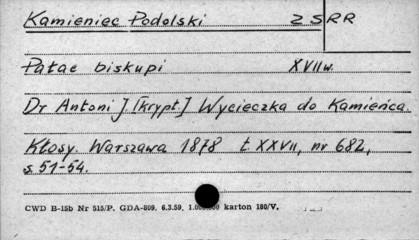 Kamieniec Podolski ZSRR
Pałac biskupi XVII w.
Dr Antoni J. [krypt.] Wycieczka do Kamieńca.
Kłosy. Warszawa 1878 t. XXVII, nr 682,
s. 51-54.
CWD B-15b Nr 515/P. GDA-809. 6.3.59. karton 180/V.